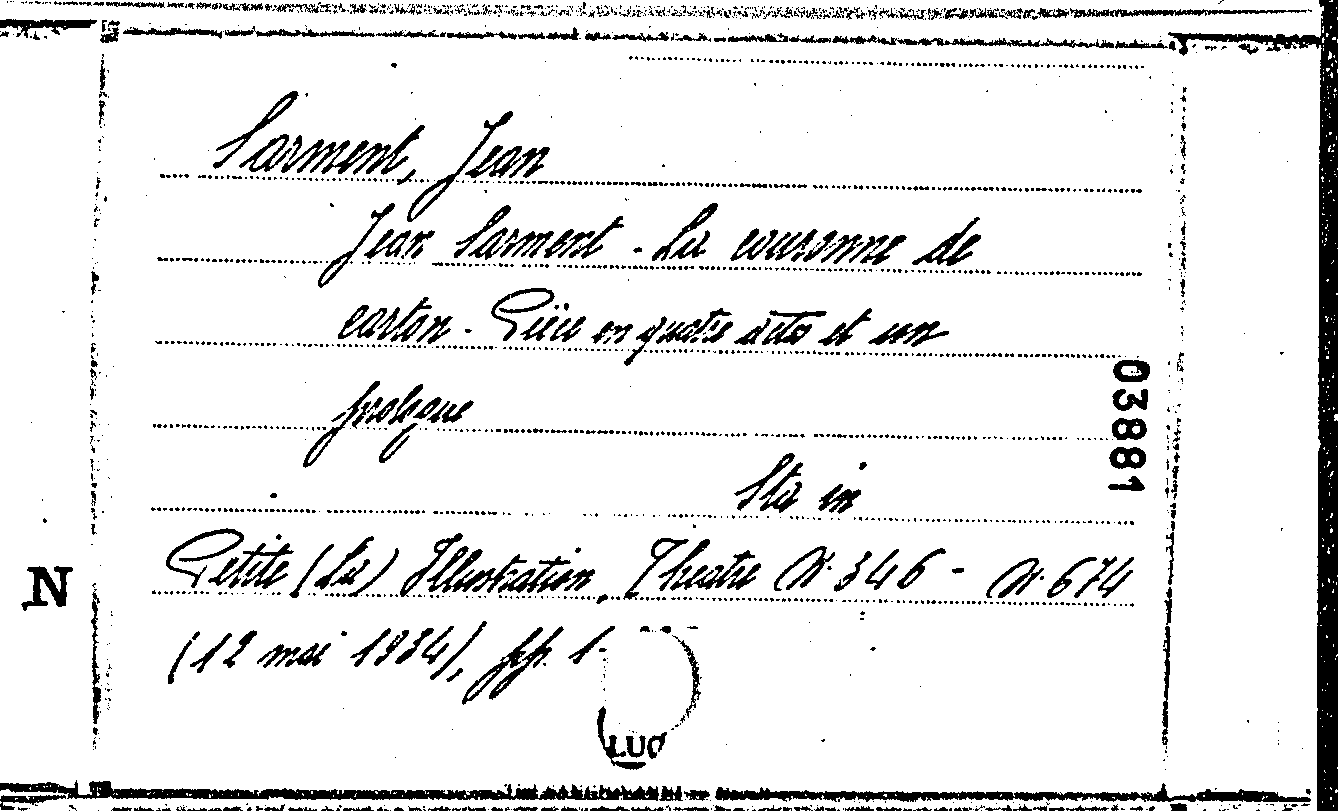 Sarment, Jean
Jean Sarment - La couronne de
carton - Pièce en quatre actes et un
prologue
03881
Sta in
Petite (La) Illustration, Théatre N. 346 - N. 674
N
(12 mai 1934), pp. 1-
LUO